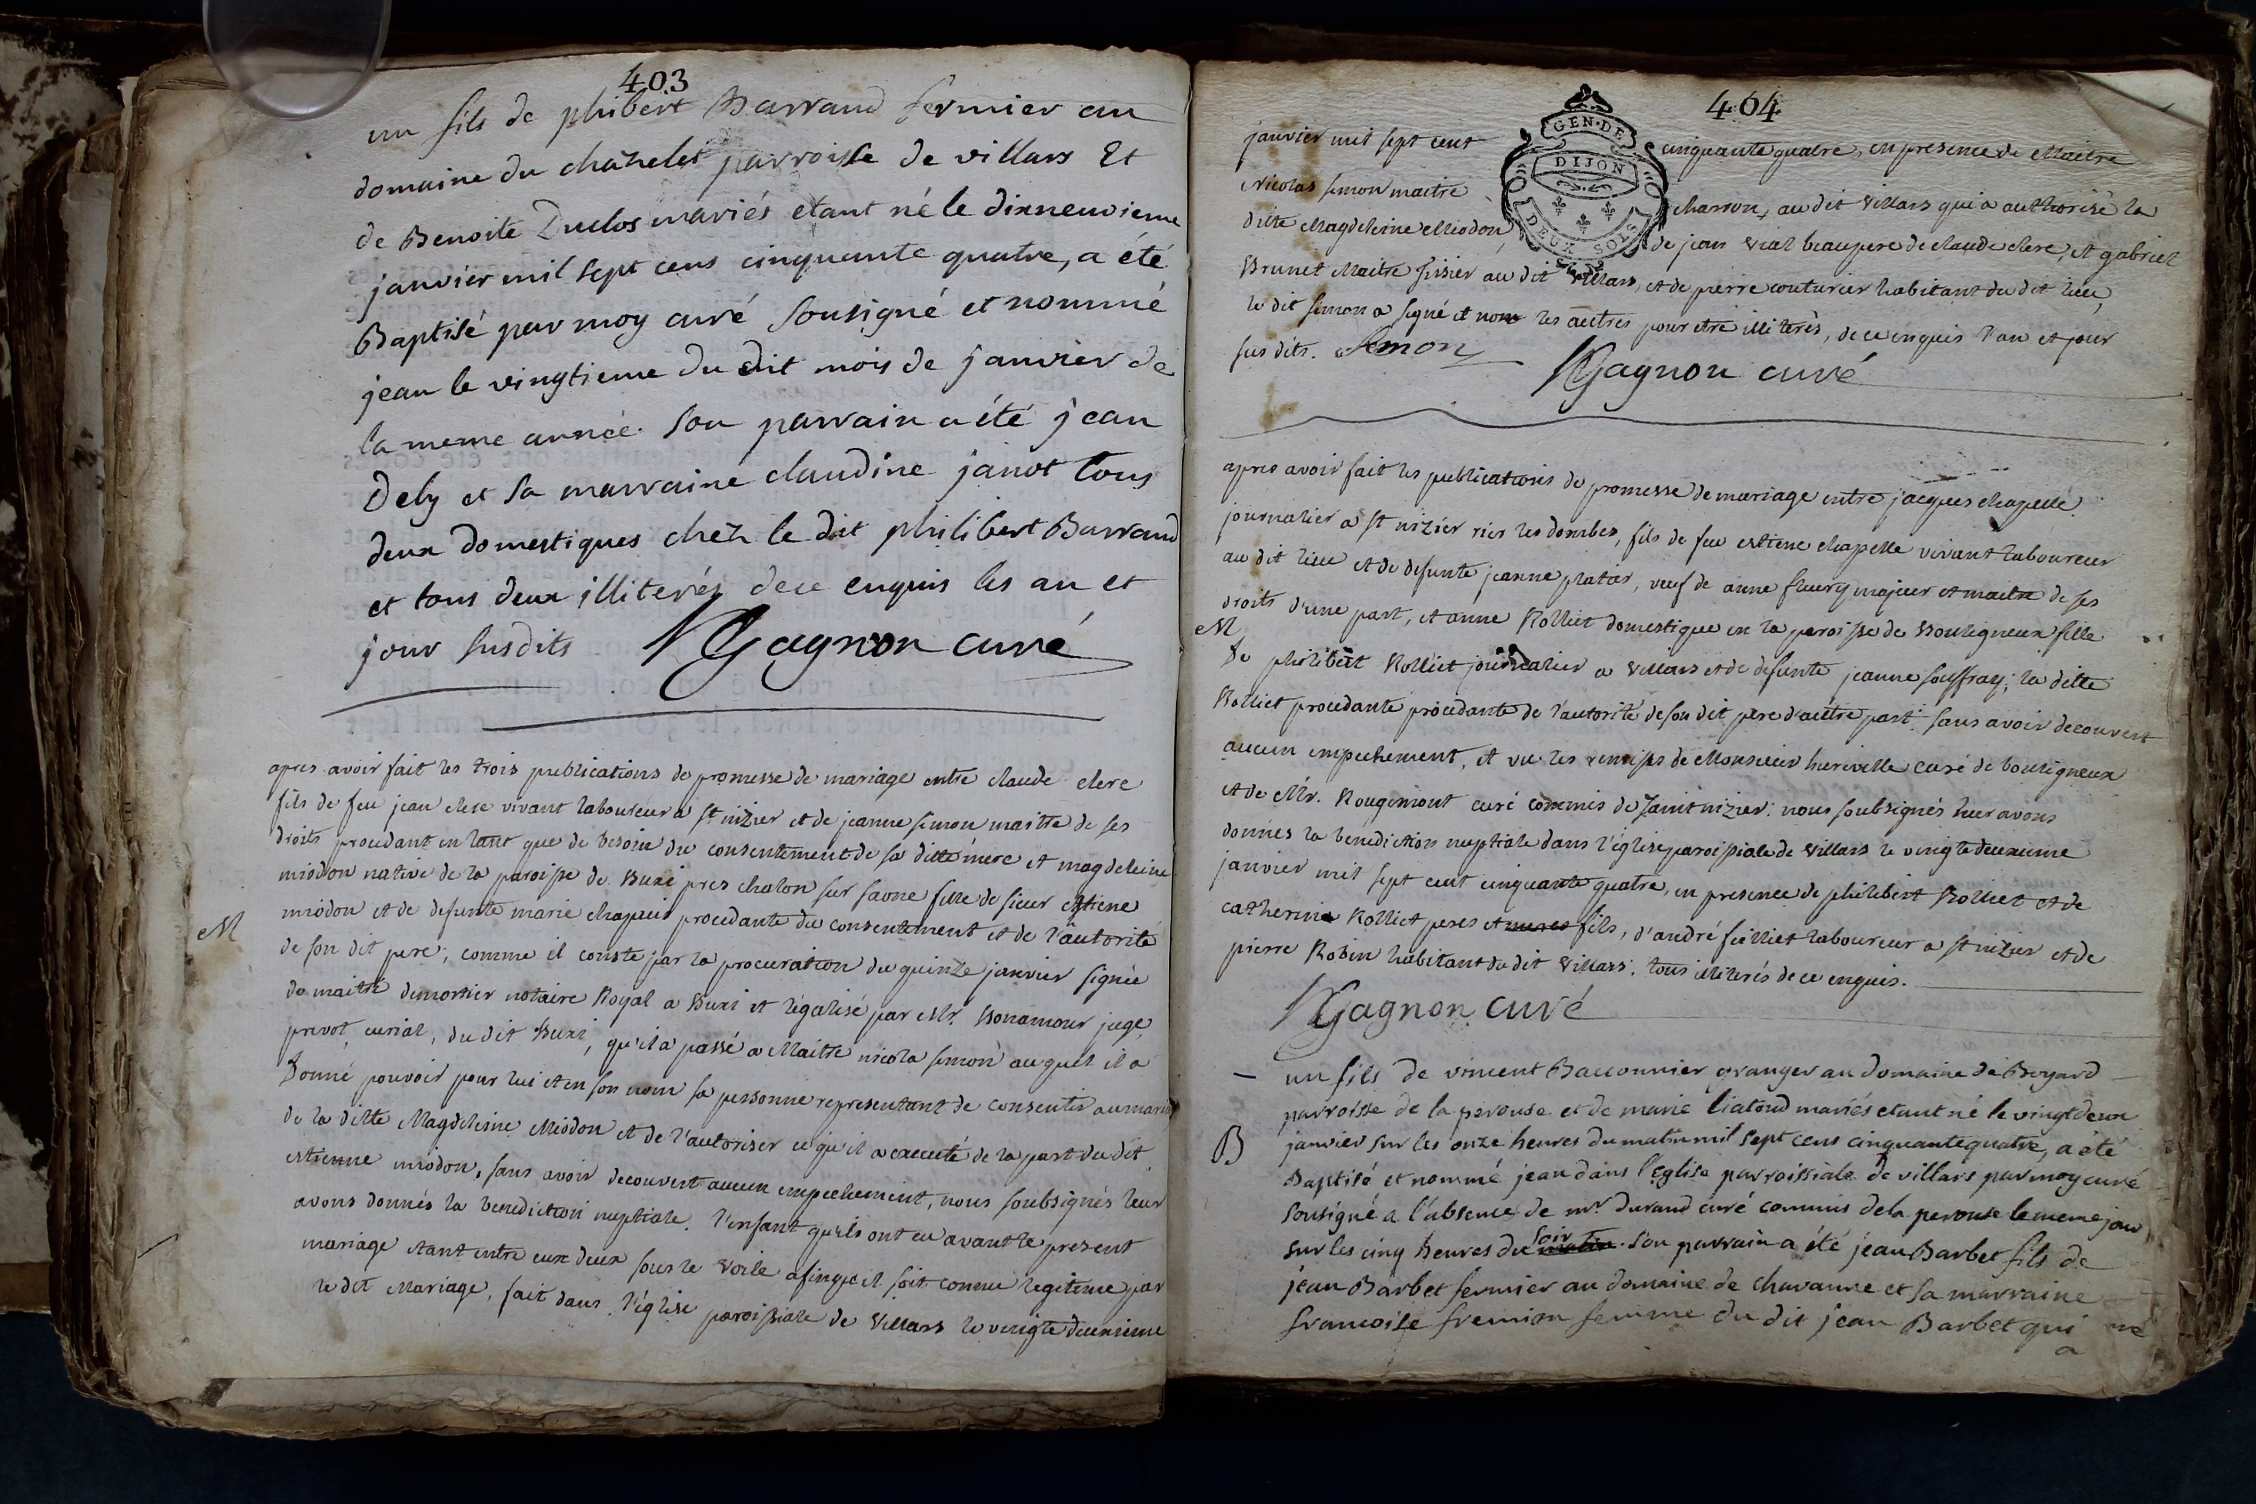 403
un fils de phibert Barraud fermier au
domaine du chatelet parroisse de villars Et
de Benoite Duclos mariés etant né le dixneuvieme
janvier mil sept cens cinquante quatre, a été
Baptisé par moy curé sousigné et nommé
jean le vingtieme du dit mois de janvier de
la meme année. son parrain a été jean
Dely et sa marraine claudine janot tous
deux domestiques chez le dit philibert Barraud
et tous deux illiterés de ce enquis les an et
jour susdits Gagnon curé
apres avoir fait les trois publications de promesse de mariage entre claude clerc
fils de feu jean clerc vivant laboureur a st nizier et de jeanne simon maitre de ses
droits procedant en tant que de besoin du consentement de sa ditte mere et magdeleine
miodon native de la paroisse de Buxi pres chalon sur saone fille de sieur estiene
miodon et de defunte marie chapuis procedante du consentement et de l'autorité
M
de son dit pere; comme il conste par la procuration du quinze janvier signée
de maitre demortier notaire Royal a Buxi et légalisé par Mr. Bonamour juge
prevot, curial, du dit Buxi, qu'il a passé a Maitre nicola simon auquel il a
donné pouvoir pour lui et en son nom sa personne representant de consentir au mariage
de la ditte Magdeleine Miodon et de l'autoriser ce qu'il a executé de la part du dit
estienne miodon, sans avoir decouvert aucun empechement, nous soubsignés leur
avons donnés la benediction nuptiale. l'enfant qu'ils ont eu avant le present
mariage etant entre eux deux sous le voile afinqu'il soit connu legitime par
le dit Mariage, fait dans l'église paroissiale de villars le vingtedeuxieme
404
GEN. DE
DIJON
DEUX SOLS
janvier mil sept cent cinquante quatre, en presence de Maitre
Nicolas simon maitre charron, au dit villars qui a authorisé la
ditte Magdeleine Miodon, de jean vial beaupere de claude clerc, et gabriel
Brunet Maitre au dit villars, et de pierre couturier habitant du dit lieu,
le dit simon a signé et non les autres pour etre illiterés, de ce enquis l'an et jour
sus dits. Simon
Gagnon curé
apres avoir fait les publications de promesse de mariage entre jacques chapelle
journalier a st nizier les dombes, fils de feu estiene chapelle vivant laboureur
au dit lieu et de defunte jeanne platar, veuf de anne fleury majeur et maitre de ses
droits d'une part, et anne Rolliet domestique en la paroisse de Bouligneux fille
M
de philibert Rolliet journalier a villars et de defunte jeanne souffray; la ditte
Rolliet procedante procedante de l'autorité de son dit pere d'autre part: sans avoir decouvert
aucun empechement, et vu les remises de Monsieur heriville curé de bouligneux
et de Mr. Rougemont curé commis de saint nizier: nous soubsignés leur avons
donnés la benediction nuptiale dans l'église paroissiale de villars le vingtedeuxieme
janvier mil sept cent cinquante quatre, en presence de philibert Rolliet et de
catherine Rolliet peres et meres fils, d'andré laboureur a st nizier et de
pierre Robin habitant du dit villars: tous illiterés de ce enquis.
Gagnon curé
un fils de vincent Baconnier granger au domaine de Boyard
parroisse de la perouse et de marie liatoud mariés etant né le vingtdeux
B
janvier sur les onze heures du matin mil sept cens cinquante quatre, a été
Baptisé et nommé jean dans l'eglise parroissiale de villars par moy curé
sousigné a l'absence de mr. durand curé commis de la perouse le meme jour
sur les cinq heures du matin soir. son parrain a été jean Barbet fils de
jean Barbet fermier au domaine de chavanne et sa marraine
francoise fremion femme du dit jean Barbet qui